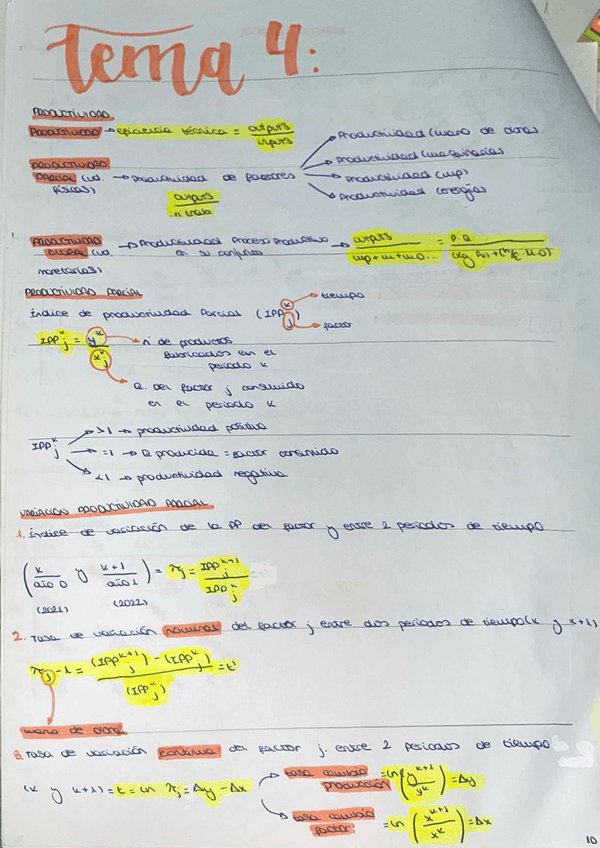 Tema 4:
PRODUCTIVIDAD
PRODUCTIVIDAD → eficiencia técnica = outputs / inputs
PRODUCTIVIDAD PARCIAL (ud físicas) → Productividad de factores
outputs / n trab
Productividad (mano de obra)
Productividad (maquinarias)
Productividad (mp)
Productividad (energías)
PRODUCTIVIDAD GLOBAL (ud. monetarias) → Productividad Proceso Productivo en su conjunto → outputs / mp + m + mo... = P.Q
PRODUCTIVIDAD PARCIAL
Índice de productividad Parcial (IPP k j)
→ tiempo
→ factor
IPP^k_j = y^k / x^k_j
→ n' de productos fabricados en el periodo k
Q. del factor j consumido en el periodo k
IPP^k_j
>1 → productividad positiva
=1 → Q producida = factor consumido
<1 → productividad negativa
VARIACIÓN PRODUCTIVIDAD PARCIAL
1. Índice de variación de la PP del factor y entre 2 periodos de tiempo
(k / año 0 y k+1 / año 1) = π_j = IPP^k+1_j / IPP^k_j
(2021) (2022)
2. Tasa de variación nominal del factor j entre dos periodos de tiempo (k y k+1)
π_j - 1 = (IPP^k+1_j) - (IPP^k_j) / (IPP^k_j) = t'
mano de obra
3. Tasa de variación continua del factor j. entre 2 periodos de tiempo
(k y k+1) = t = ln π_j = Δy - Δx
tasa cambio producción = ln (y^k+1 / y^k) = Δy
tasa cambio factor = ln (x^k+1 / x^k) = Δx
10